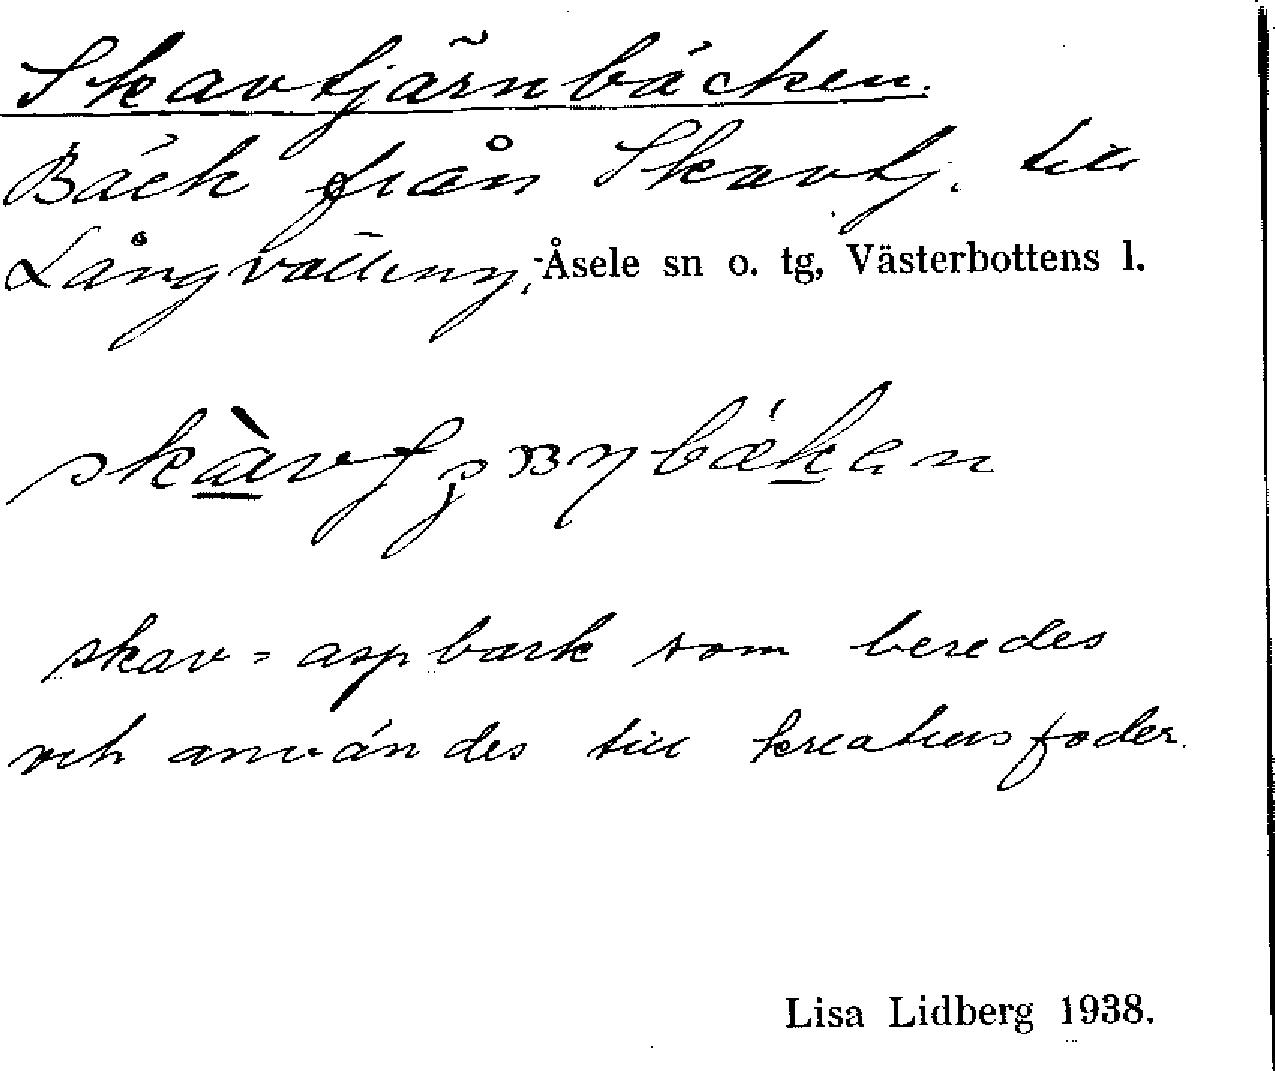 Skavtjärnbäcken.
Bäck från Skavtj. till
Åsele sn o. tg, Västerbottens l.
skav = aspbark som beredes
och användes till kreatursfoder.
Lisa Lidberg 1938.